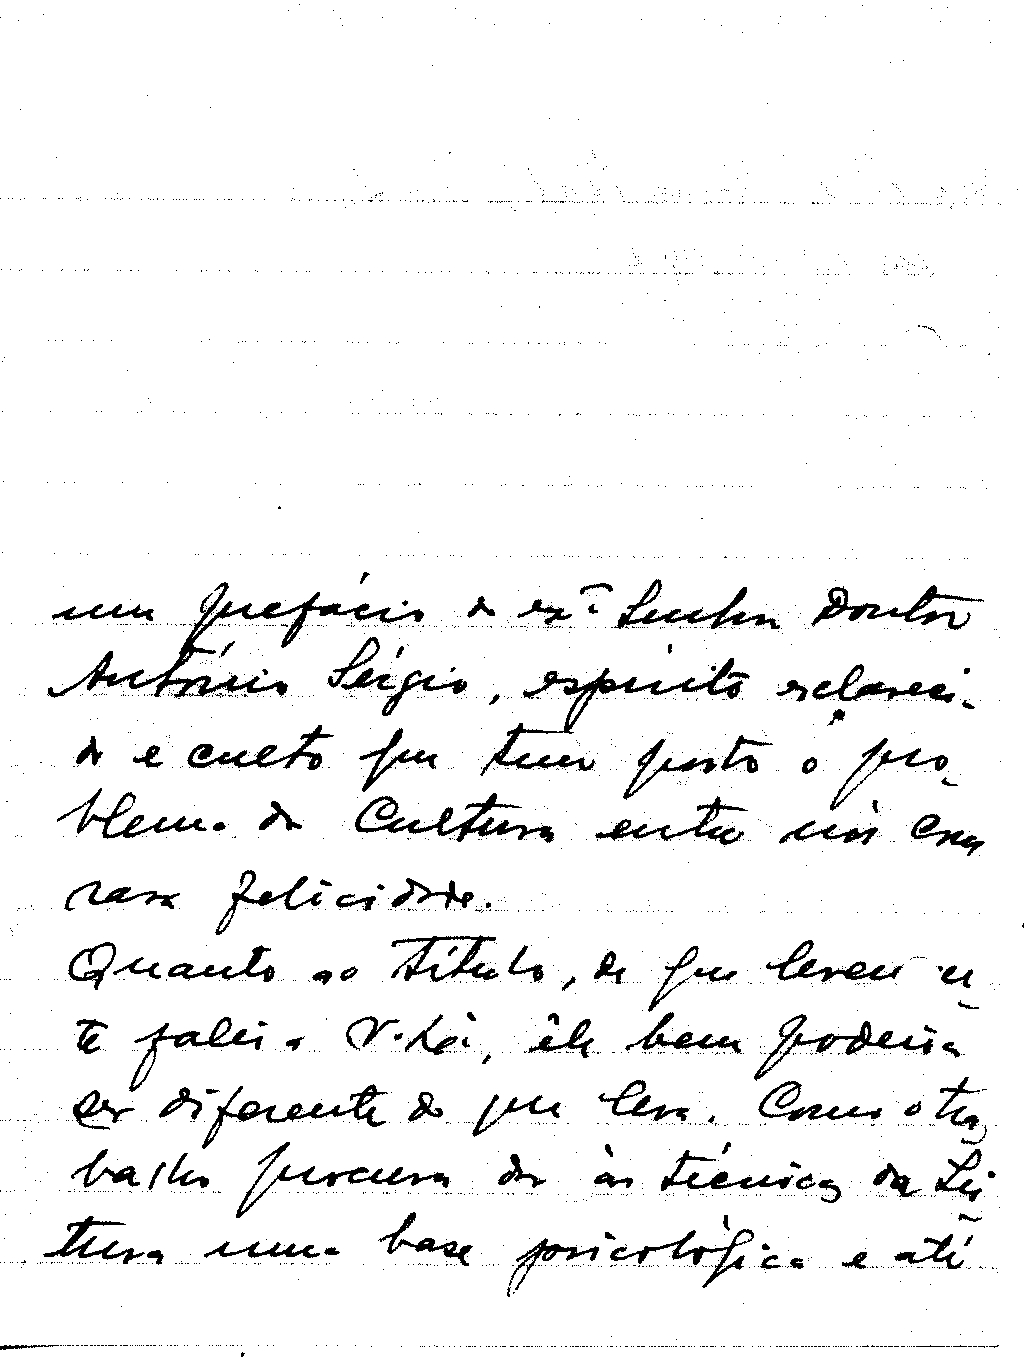 um prefácio do exº Senhor Doutor
António Sérgio, espírito esclareci-
do e culto que tem posto o pro-
blema da Cultura entre nós com
rara felicidade.
Quanto ao título, de que levou es-
te falei a V. Lá, êle bem poderia
ser diferente do que leva. Como o tra-
balho procura dar às técnicas da Lei-
tura uma base psicológica e até